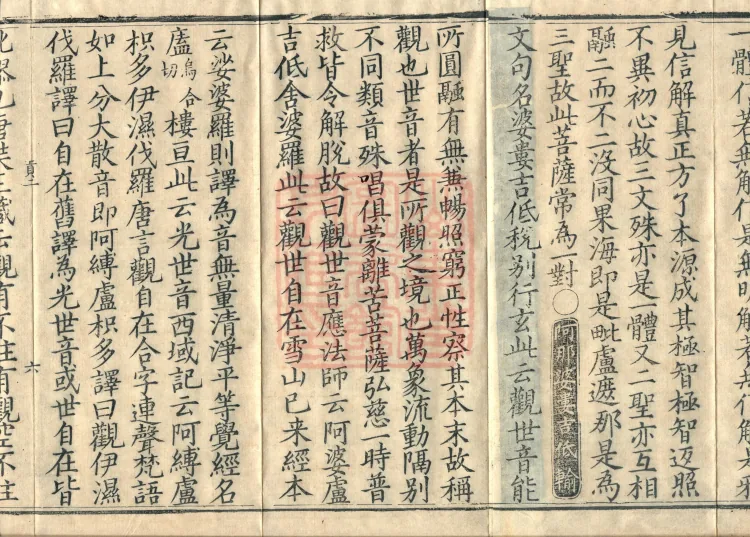 一體信若無解信是無明解若無信解是邪
見信解真正方了本源成其極智極智返照
不異初心故三文殊亦是一體又二聖亦互相
融二而不二沒同果海即是毗盧遮那是為
三聖故此菩薩常為一對○阿那婆婁吉低輸
文句名婆婁吉低稅別行玄此云觀世音能
所圓融有無兼暢照窮正性察其本末故稱
觀也世音者是所觀之境也萬象流動隔別
不同類音殊唱俱蒙離苦菩薩弘慈一時普
救皆令解脫故曰觀世音應法師云阿婆盧
吉低舍婆羅此云觀世自在雪山已来經本
云娑婆羅則譯為音無量清淨平等覺經名
廅烏合切樓亘此云光世音西域記云阿縛盧
枳多伊濕伐羅唐言觀自在合字連聲梵語
如上分大散音即阿縛盧枳多譯曰觀伊濕
伐羅譯曰自在舊譯為光世音或世自在皆
六
訛謬也唐奘三藏云觀有不住有觀空不住